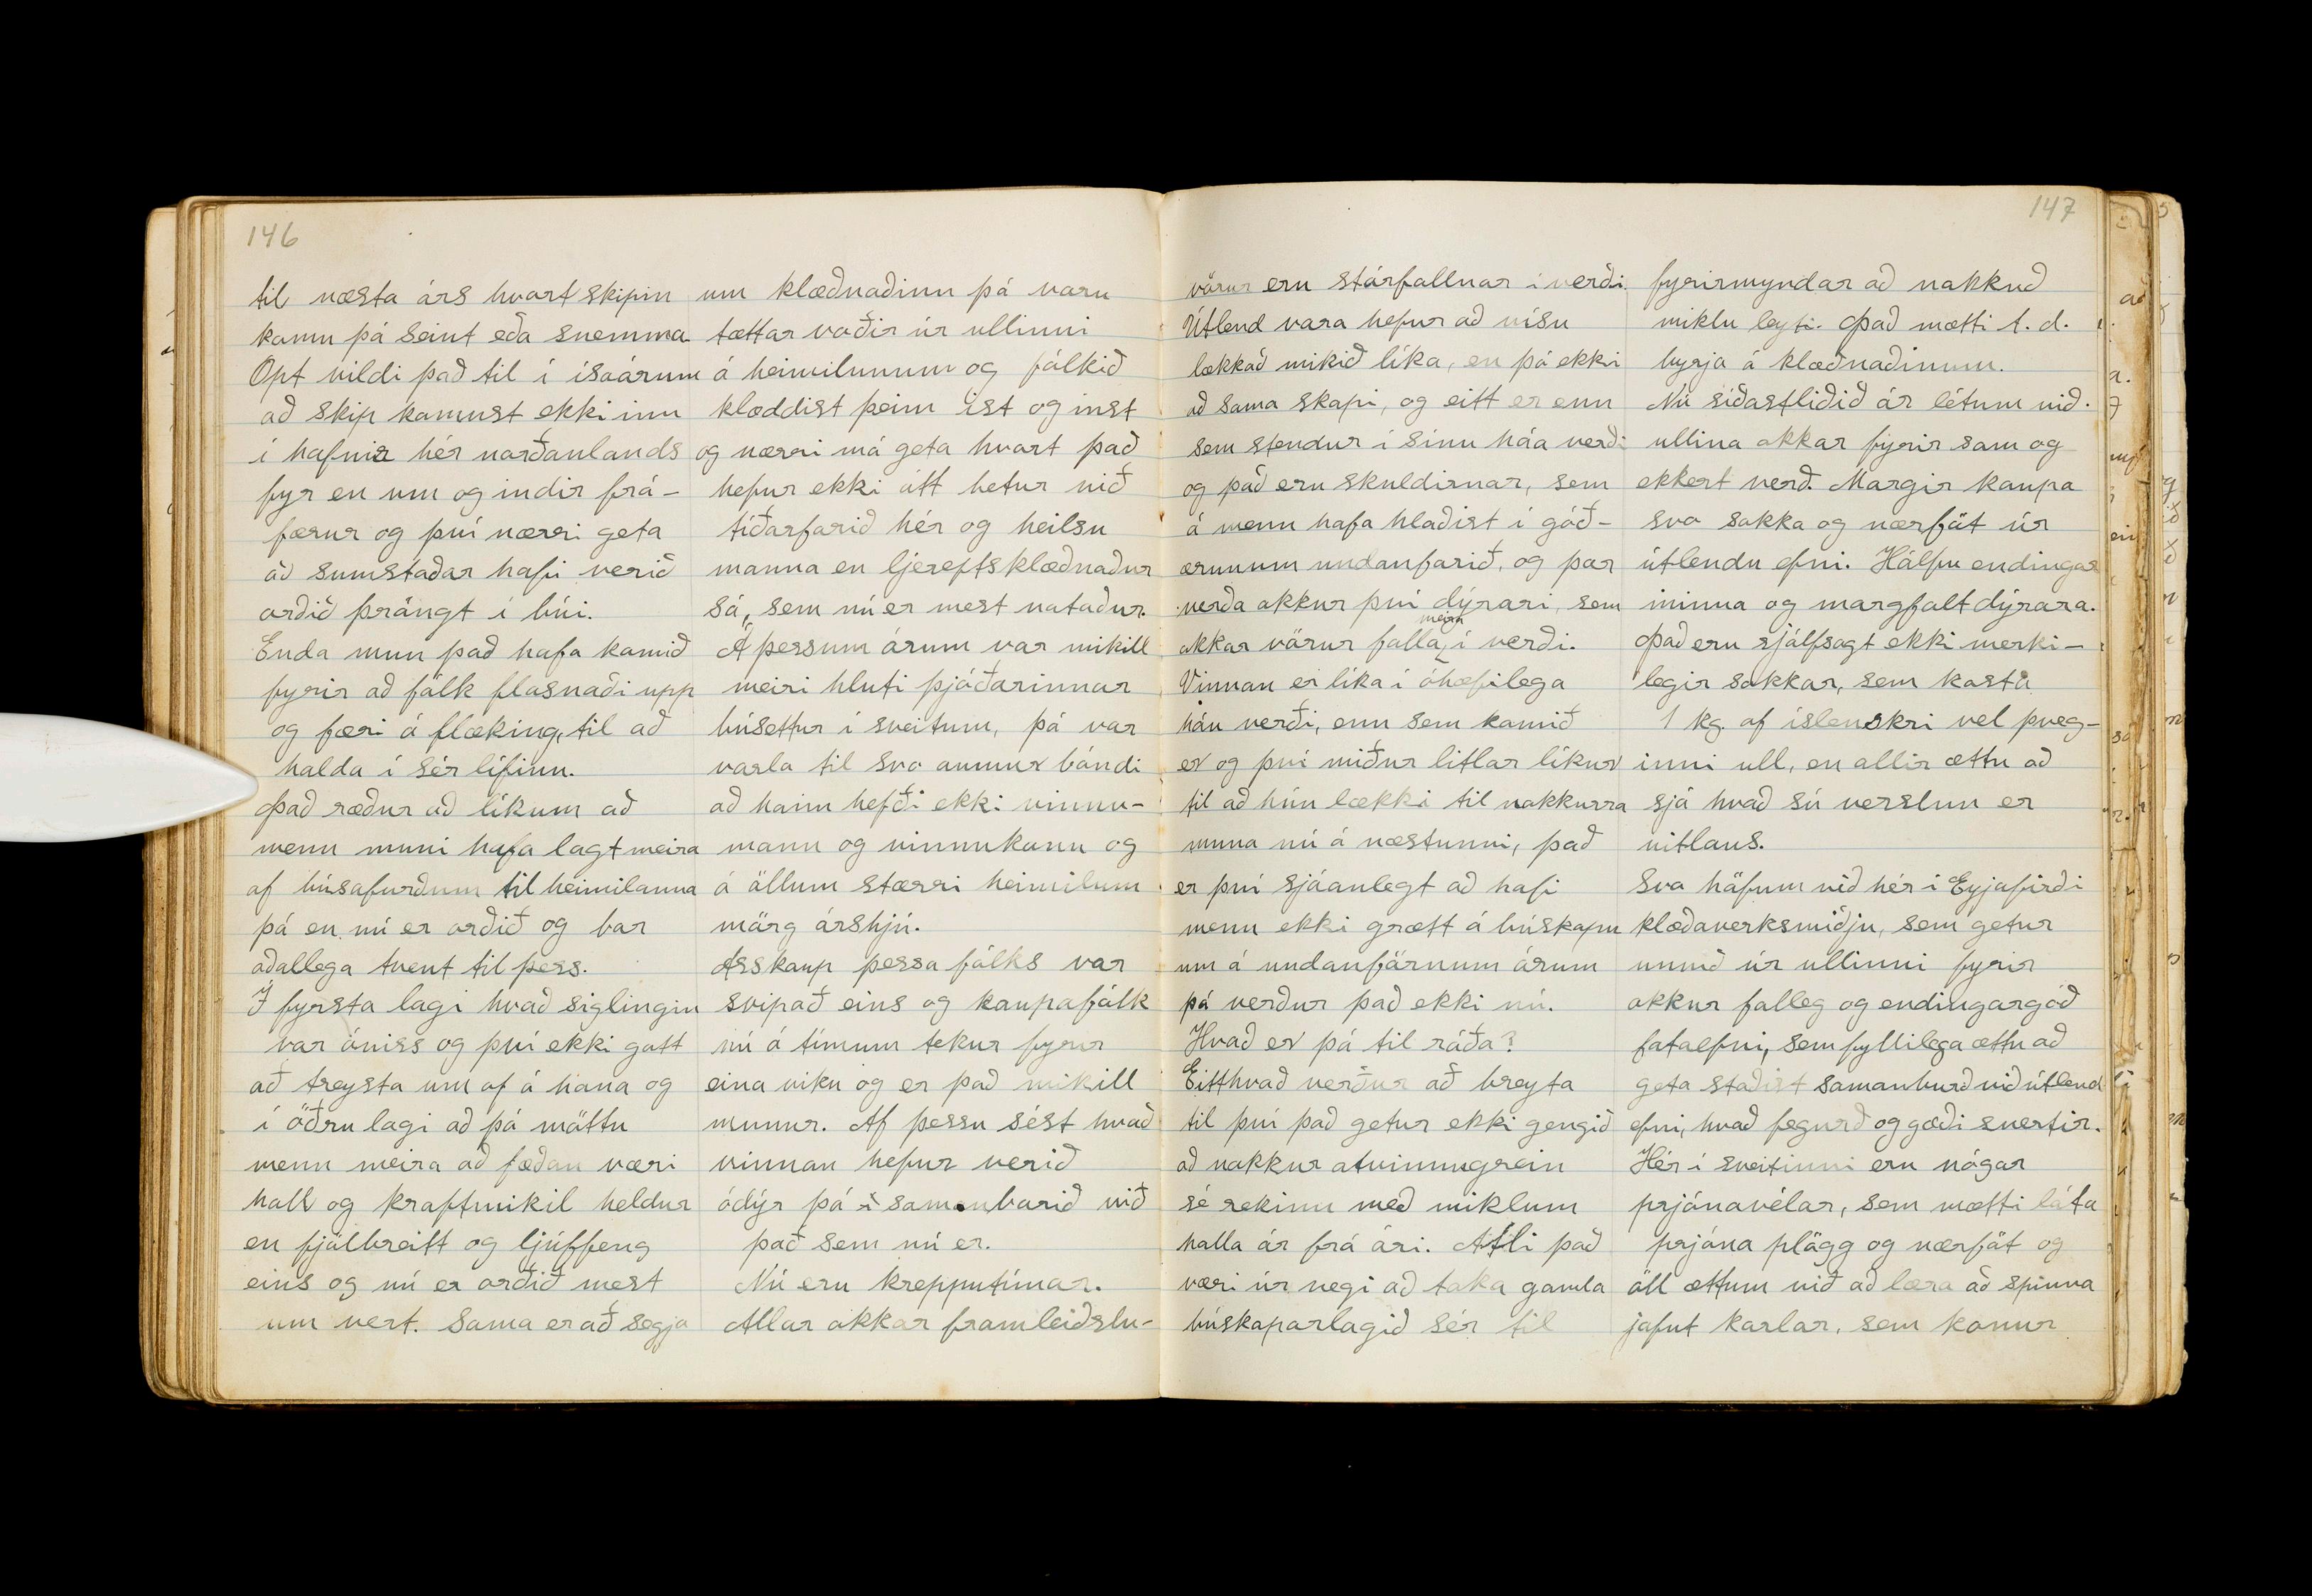 146
til næsta árs hvort skipin
komu þá seint eða snemma
Opt vildi það til í ísaárum
að skip komust ekki inn
í hafnir hér norðanlands
fyr en um og undir frá-
færur og því nærri geta
að sumstaðar hafi verið
orðið þröngt í búi.
Enda mun það hafa komið
fyrir að fólk flosnaði upp
og færi á flæking, til að
halda í sér lífinu.
Það ræður að líkum að
menn muni hafa lagt meira
af búsafurðum til heimilanna
þá en nú er orðið og bar
aðallega tvent til þess.
Í fyrsta lagi hvað siglingin
var óviss og því ekki gott
að treysta um of á hana og
í öðru lagi að þá mättu
menn meira að fæðan væri
holl og kraftmikil heldur
en fjölbreitt og ljúffeng
eins og nú er orðið mest
um vert. Sama er að segja
um klæðnaðinn þá voru
tættar voðir úr ullinni
á heimilunum og fólkið
klæddist þeim ist og inst
og nærri má geta hvort það
hefur ekki átt betur við
tíðarfarið hér og heilsu
manna en ljereftsklæðnaður
sá, sem nú er mest notaður.
Á þessum árum var mikill
meiri hluti þjóðarinnar
búsettur í sveitum, þá var
varla til svo aumur bóndi
að hann hefði ekki vinnu-
mann og vinnukonu og
á öllum stærri heimilum
mörg árshjú.
Árskaup þessa fólks var
svipað eins og kaupafólk
nú á tímum tekur fyrir
eina viku og er það mikill
munur. Af þessu sést hvað
vinnan hefur verið
ódýr þá í samanbarið við
það sem nú er.
Nú eru krepputímar.
Allar okkar framleiðslu-
147
vörur eru stórfallnar í verði.
Útlend vara hefur að vísu
lækkað mikið líka, en þó ekki
að sama skapi, og eitt er enn
sem stendur í sínu háa verði
og það eru skuldirnar, sem
á menn hafa hlaðist í góð-
ærunum undanfarið, og þær
verða okkur því dýrari, sem
meira
okkar vörur falla í verði.
Vinnan er líka í óhæfilega
háu verði, enn sem komið
er og því miður litlar líkur
til að hún lækki til nokkurra
muna nú á næstunni, það
er því sjáanlegt að hafi
menn ekki grætt á búskapn
um á undanförnum árum
þá verður það ekki nú.
Hvað er þá til ráða?
Eitthvað verður að breyta
til því það getur ekki gengið
að nokkur atvinnugrein
sé rekinn með miklum
halla ár frá ári. Ætli það
væri úr vegi að taka gamla
búskaparlagið sér til
fyrirmyndar að nokkuð
miklu leyti. Það mætti t.d.
byrja á klæðnaðinum.
Nú síðastliðið ár létum við
ullina okkar fyrir sam og
ekkert verð. Margir kaupa
svo sokka og nærföt úr
útlendu efni. Hálfu endingar
minna og margfalt dýrara.
Það eru sjálfsagt ekki merki-
legir sokkar, sem kosta
1 kg. af íslenskri vel þveg-
inni ull, en allir ættu að
sjá hvað sú verslun er
vitlaus.
Svo höfum við hér í Eyjafirði
klæðaverksmiðju, sem getur
unnið úr ullinni fyrir
okkur falleg og endingargóð
fataefni, sem fyllilega ættu að
geta staðist samanburð við útlend
efni, hvað fegurð og gæði snertir.
Hér í sveitinni eru nógar
prjónavélar, sem mætti láta
prjóna plögg og nærföt og
öll ættum við að læra að spinna
jafnt karlar, sem konur